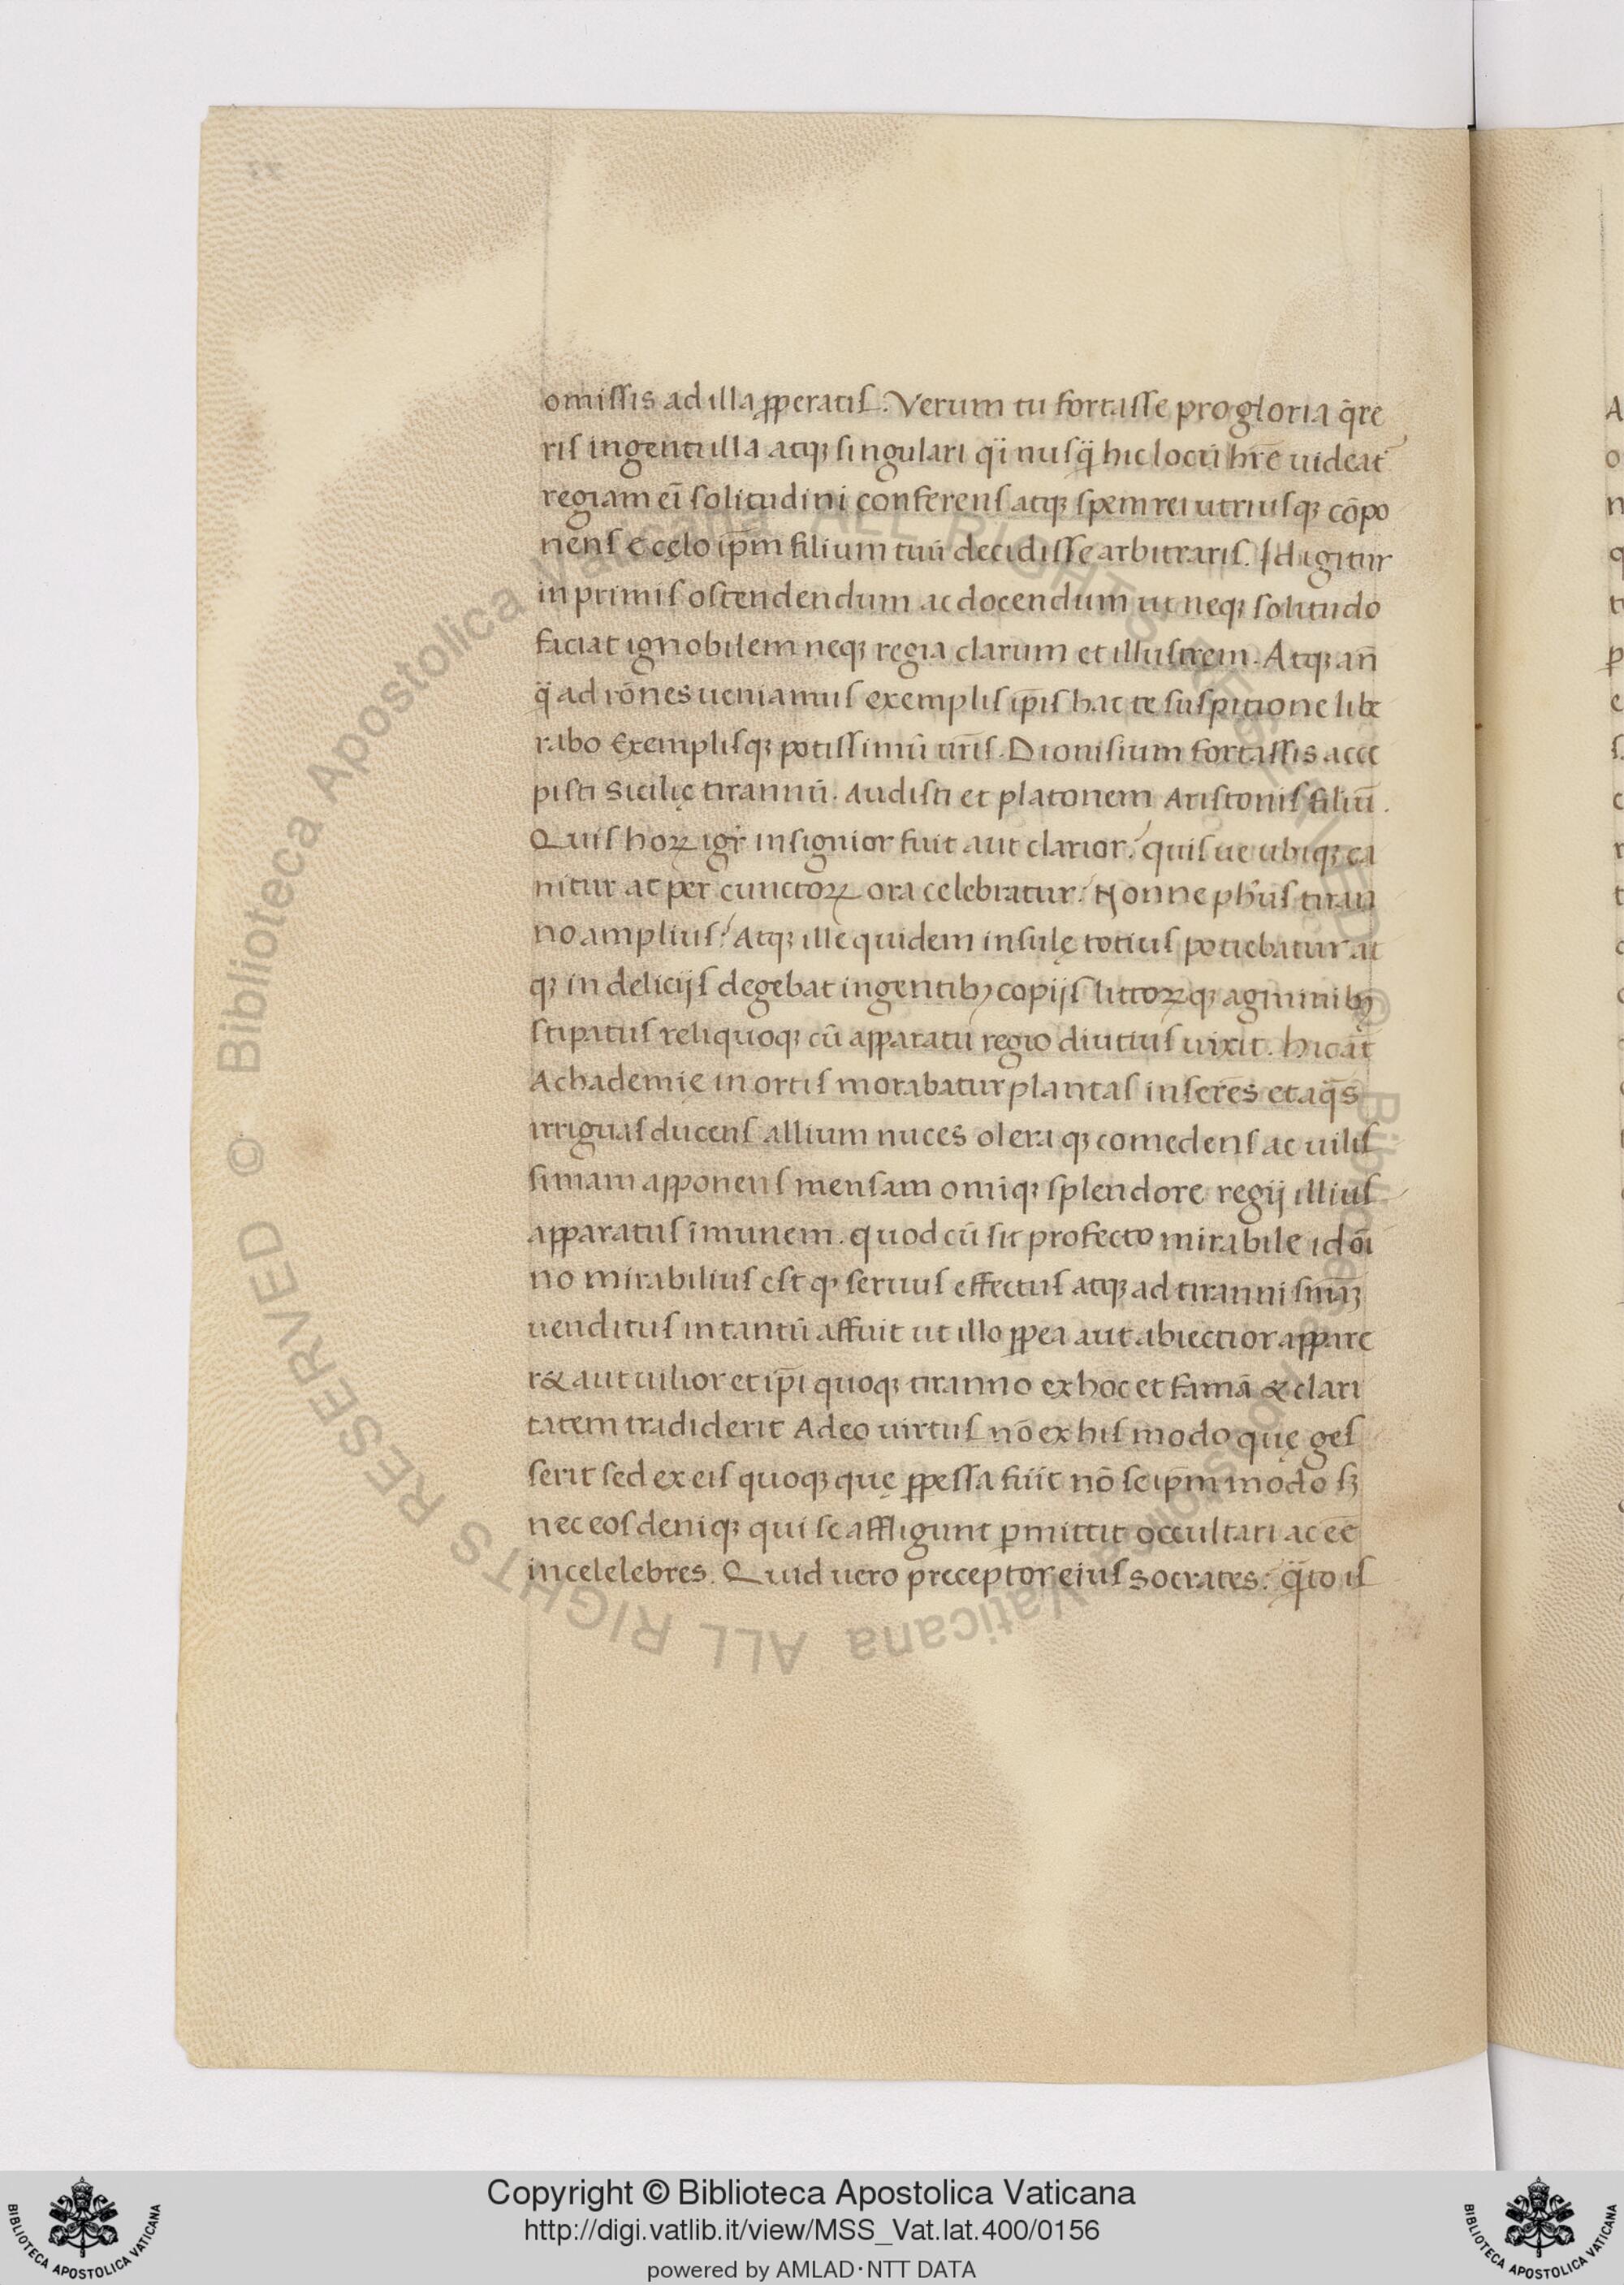 omissis ad illa ꝓperatis. Verum tu fortasse pro gloria q̄re
ris ingenti illa atqꝫ singulari qͥ nusq̈ hic locū hr̄e uideat᷑
regiam ei̅ solitudini conferens atqꝫ spem rei utriusqꝫ cōpo
nens e cęlo ip̄m filium tuū decidisse arbitraris. Id igitur
in primis ostendendum ac docendum ut neqꝫ solitudo
faciat ignobilem neqꝫ regia clarum et illustrem. Atqꝫ an̄
q̈ ad rōnes ueniamus exemplis ip̄is hac te suspitione libe
rabo Exemplisqꝫ potissimū ur̄is. Dionisium fortassis acce
pisti Sicilię tirannū. Audisti et platonem Aristonis filiū.
Quis hoꝝ igr̄ insignior fuit aut clarior? quis ue ubiqꝫ ca
nitur ac per cunctoꝝ ora celebratur? Nonne ph̄us tiran
no amplius? Atqꝫ ille quidem insulę totius potiebatur at
qꝫ in delicijs degebat ingentibꝫ copijs littoꝝqꝫ agminibꝫ
stipatus reliquoqꝫ cū apparatu regio diutius uixit. hic at̄
Achademię in ortis morabatur plantas inserēs et aq̄s
irriguas ducens allium nuces oleraqꝫ comedens ac uilis
simam apponens mensam omiqꝫ splendore regij illius
apparatus īmunem. quod cū sit profecto mirabile id oī
no mirabilius est qꝫ seruus effectus atqꝫ ad tiranni sn̄iaꝫ
uenditus in tantū affuit ut illo ꝓpea aut abiectior appare
r& aut uilior et ip̄i quoqꝫ tiranno ex hoc et famā & clari
tatem tradiderit Adeo uirtus nō ex his modo quę ges
serit sed ex eis quoqꝫ quę ꝓpessa fu̅it nō se ip̄m modo sꝫ
nec eos deniqꝫ qui se affligunt ꝑmittit occultari ac eē
incelelebres. Quid uero preceptor eius Socrates? q̈to is
Copyright © Biblioteca Apostolica Vaticana
http://digi.vatlib.it/view/MSS_Vat.lat.400/0156
powered by AMLAD·NTT DATA